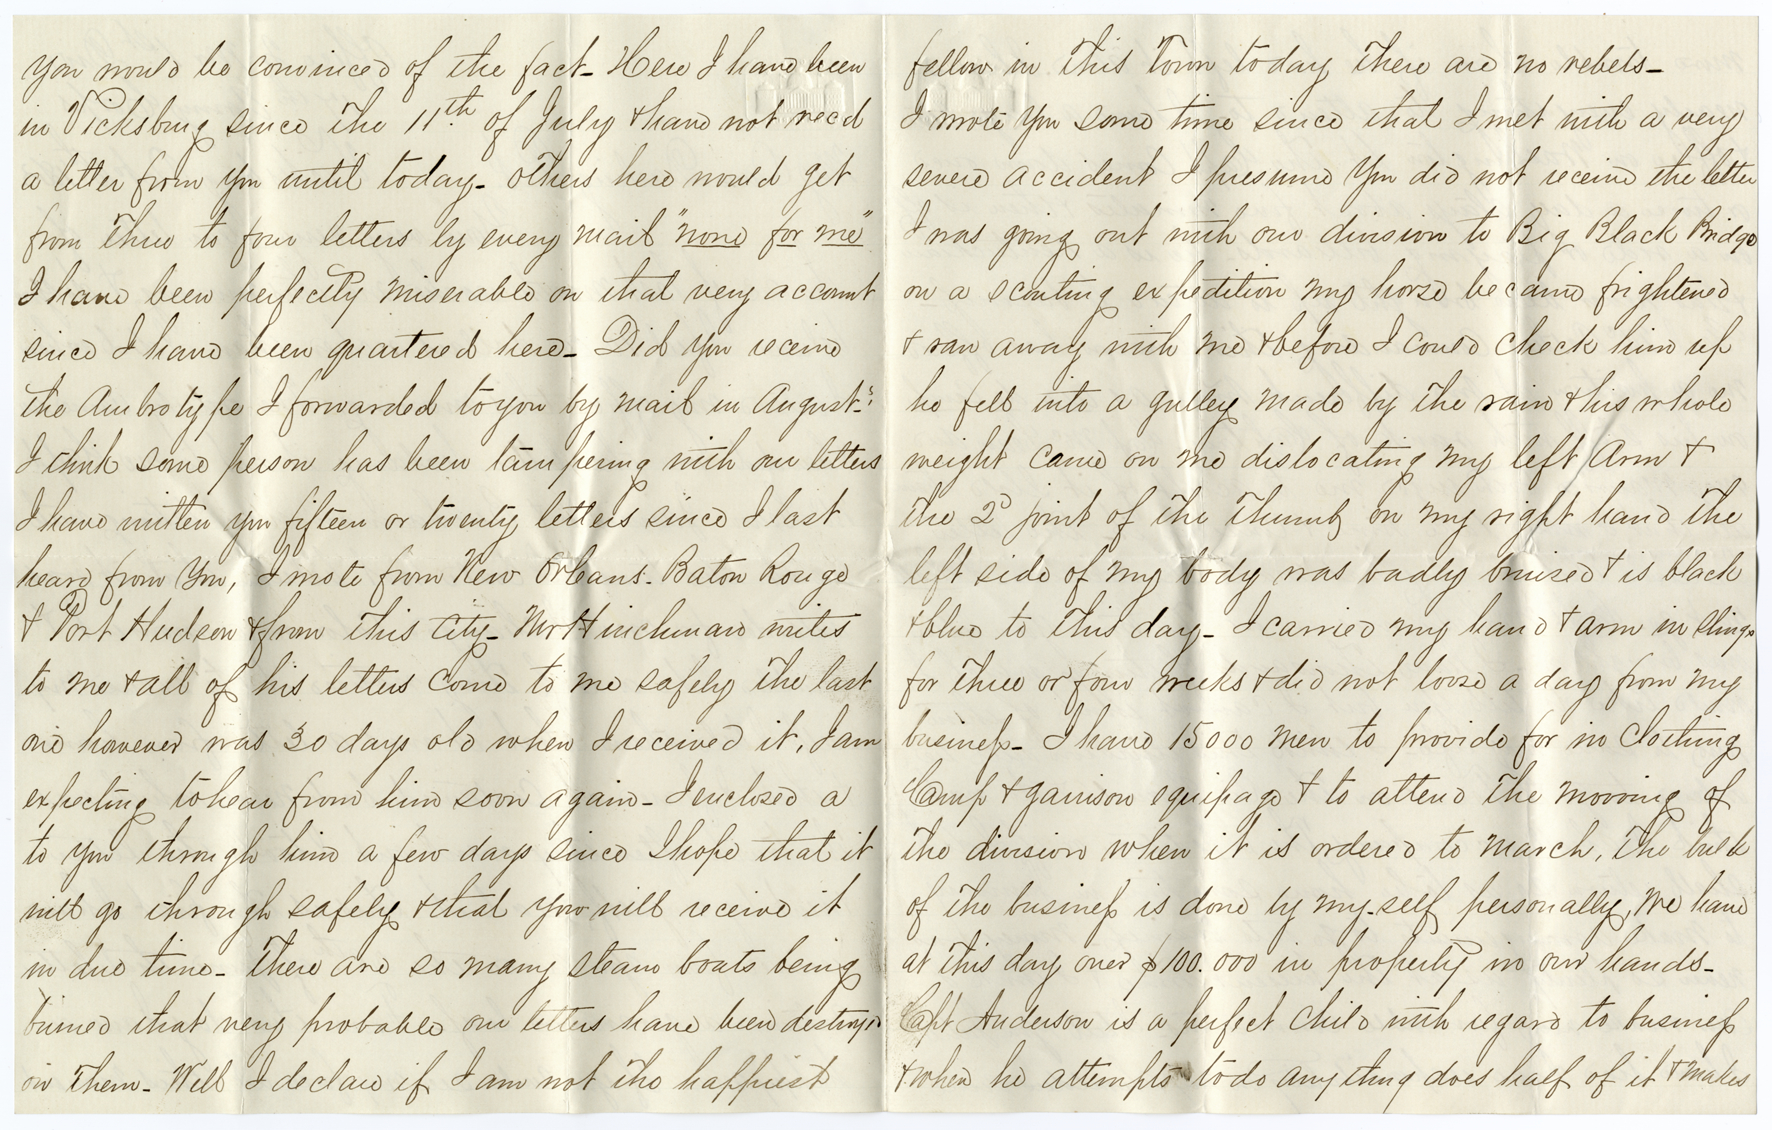 You would be convinced of the fact- Here I have been
in Vicksburg since the 11th of July & have not recd
a letter from you until today- others here would get
from three to four letters by every mail "none for me"
I have been perfectly miserable on that very account
since I have been quartered here- Did you receive
the Ambrotype I forwarded to you by mail in August-?
I think some person has been tampering with our letters
I have written you fifteen or twenty letters since I last
heard from You, I wrote from New Orleans- Baton Rouge
& Port Hudson & from this City- Mr Hinchman writes
to me & all of his letters come to me safely the last
one however was 30 days old when I received it, I am
expecting to hear from him soon again- I enclosed a
to you through him a few days since I hope that it
will go through safely & that you will receive it
in due time- There are so many steam boats being
burned that very probable our letters have been destroyd
on them- Well I declare if I am not the happiest
fellow in This Town today there are no rebels-
I wrote you some time since that I met with a very
severe accident I presume You did not receive the letter
I was going out with our division to Big Black Bridge
on a scouting expedition my horse became frightened
& ran away with me & before I could check him up
he fell into a gulley made by the rain & his whole
weight came on me dislocating my left Arm &
the 2d joint of the thumb on my right hand the
left side of my body was badly bruised & is black
& blue to this day- I carried my hand & arm in slings
for three or four weeks & did not loose a day from my
business- I have 15000 men to provide for in Clothing
Camp & garrison equipage & to attend the moving of
the division when it is ordered to march, The bulk
of the business is done by my-self personally, We have
at this day over $100.000 in property in our hands-
Capt Anderson is a perfect child with regard to business
& when he attempts to do any thing does half of it & makes